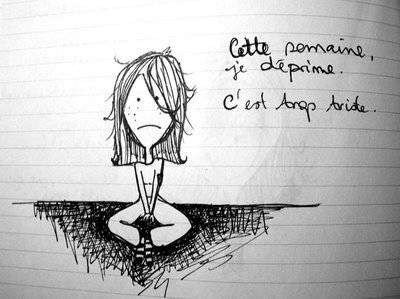 Cette semaine,
je déprime.
C'est trop triste.